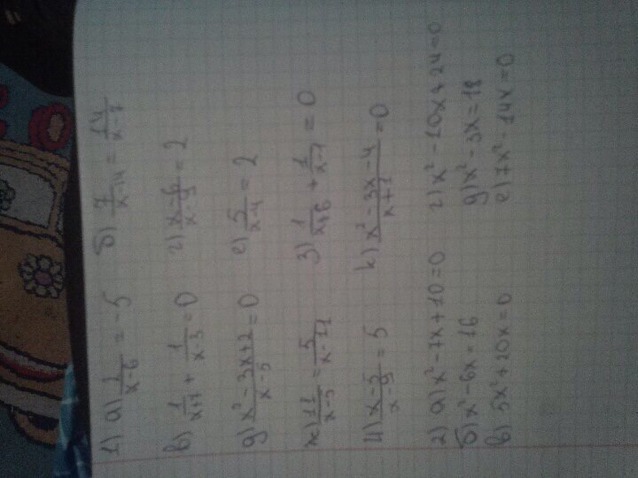 1) а) 1/(x-6) = -5   б) 7/(x-14) = 14/(x-7)
в) 1/(x+7) + 1/(x-3) = 0   г) (x-6)/(x-9) = 2
д) (x²-3x+2)/(x-5) = 0   е) 5/(x-4) = 2
ж) 11/(x-5) = 5/(x-11)   з) 1/(x+6) + 1/(x-7) = 0
и) (x-5)/x = 5   к) (x²-3x-4)/(x+1) = 0
2) а) x²-7x+10=0   г) x²-10x+24=0
б) x²-6x=16   д) x²-3x=18
в) 5x²+20x=0   е) 7x²-14x=0